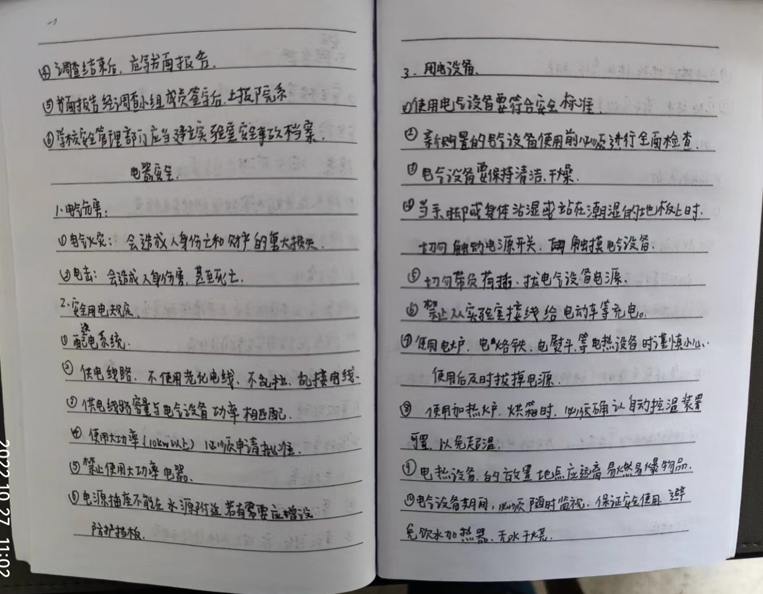 ④调查结束后,应书面报告.
⑤书面报告经调查小组成员签字后,上报院系
⑥学校安全管理部门应当建立实验室安全事故档案.
电器安全.
1.电气伤害:
①电气火灾: 会造成人身伤亡和财产的重大损失
②电击: 会造成人身伤害,甚至死亡.
2.安全用电规定.
①配电系统.
②供电线路,不使用老化电线、不乱拉、乱接用线.
③供电线路容量与电气设备功率相匹配.
④使用大功率(10kw以上)必须申请批准.
⑤禁止使用大功率电器.
⑥电源插座不能在水源附近若有需要应增设
防护挡板.
3.用电设备.
①使用电气设备要符合安全标准.
②新购置的电气设备使用前必须进行全面检查.
③电气设备要保持清洁、干燥.
④当手、脚或身体沾湿或站在潮湿的地板上时.
切勿触动电源开关、触摸电气设备.
⑤切勿带负荷插、拔电气设备电源.
⑥禁止从实验室接线给电动车等充电。
⑦使用电炉、电烙铁、电熨斗等电热设备时谨慎小心.
使用后及时拔掉电源.
⑧使用加热炉、烘箱时,必须确认自动控温装置
可靠,以免超温.
⑨电热设备的放置地点应远离易燃易爆物品.
⑩电气设备期间,必须随时监视、保证安全使用 避
免饮水加热器、无水干烧.
2022.10.27 11:02